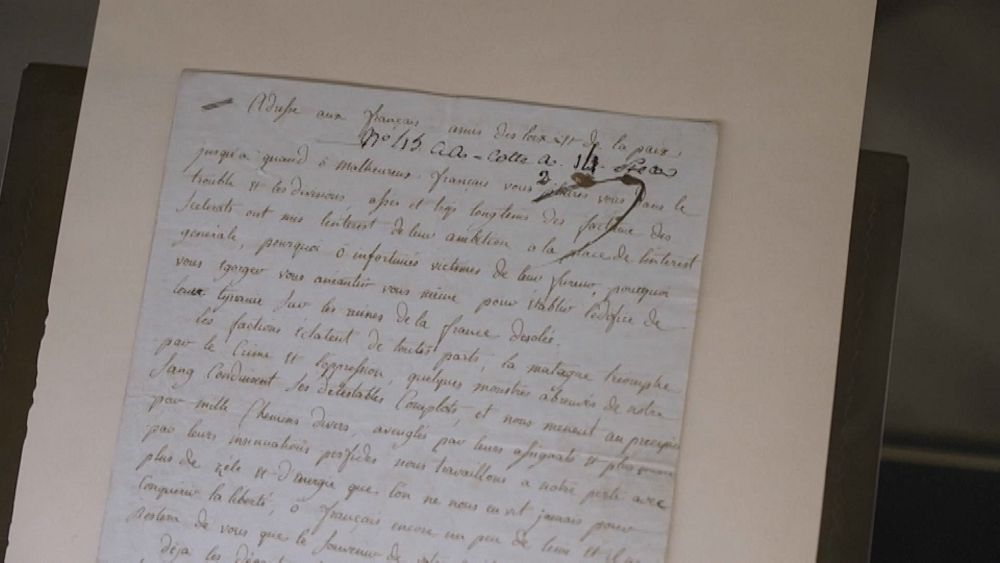 Adresse aux français amis des loix et de la paix,
No 413 Cotte a.
2
jusqu'a quand ô malheureux français vous vous dans le
trouble et les divisions, asses et trop longtems des factieux des
scelerats ont mis l'interest de leur ambition a la place de l'interest
generale, pourquoi ô infortunés victimes de leur fureur, pourquoi
vous egorger vous aneantir vous même pour etablir l'edifice de
leur tyranie sur les ruines de la france desolée.
les factions eclatent de toutes parts, la matagne triomphe
par le Crime et l'oppression, quelques monstres abreuvés de notre
sang Conduisent ses detestables Complots, et nous menent au precipice
par mille Chemins divers, aveuglés par leurs assignats et plus
par leurs insinuations perfides nous travaillons a notre perte avec
plus de zele et d'energie que l'on ne nous en vit jamais pour
Conquerir la liberté, ô français encore un peu de tems et il ne
restera de vous que le souvenir de
déja les